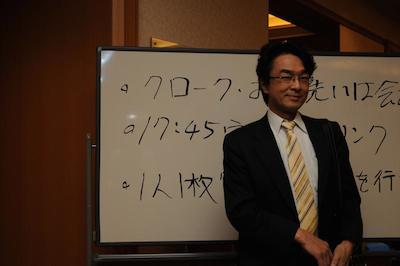 。クローク・お 洗いは会
。17:45 リンク
。1人1枚 を行